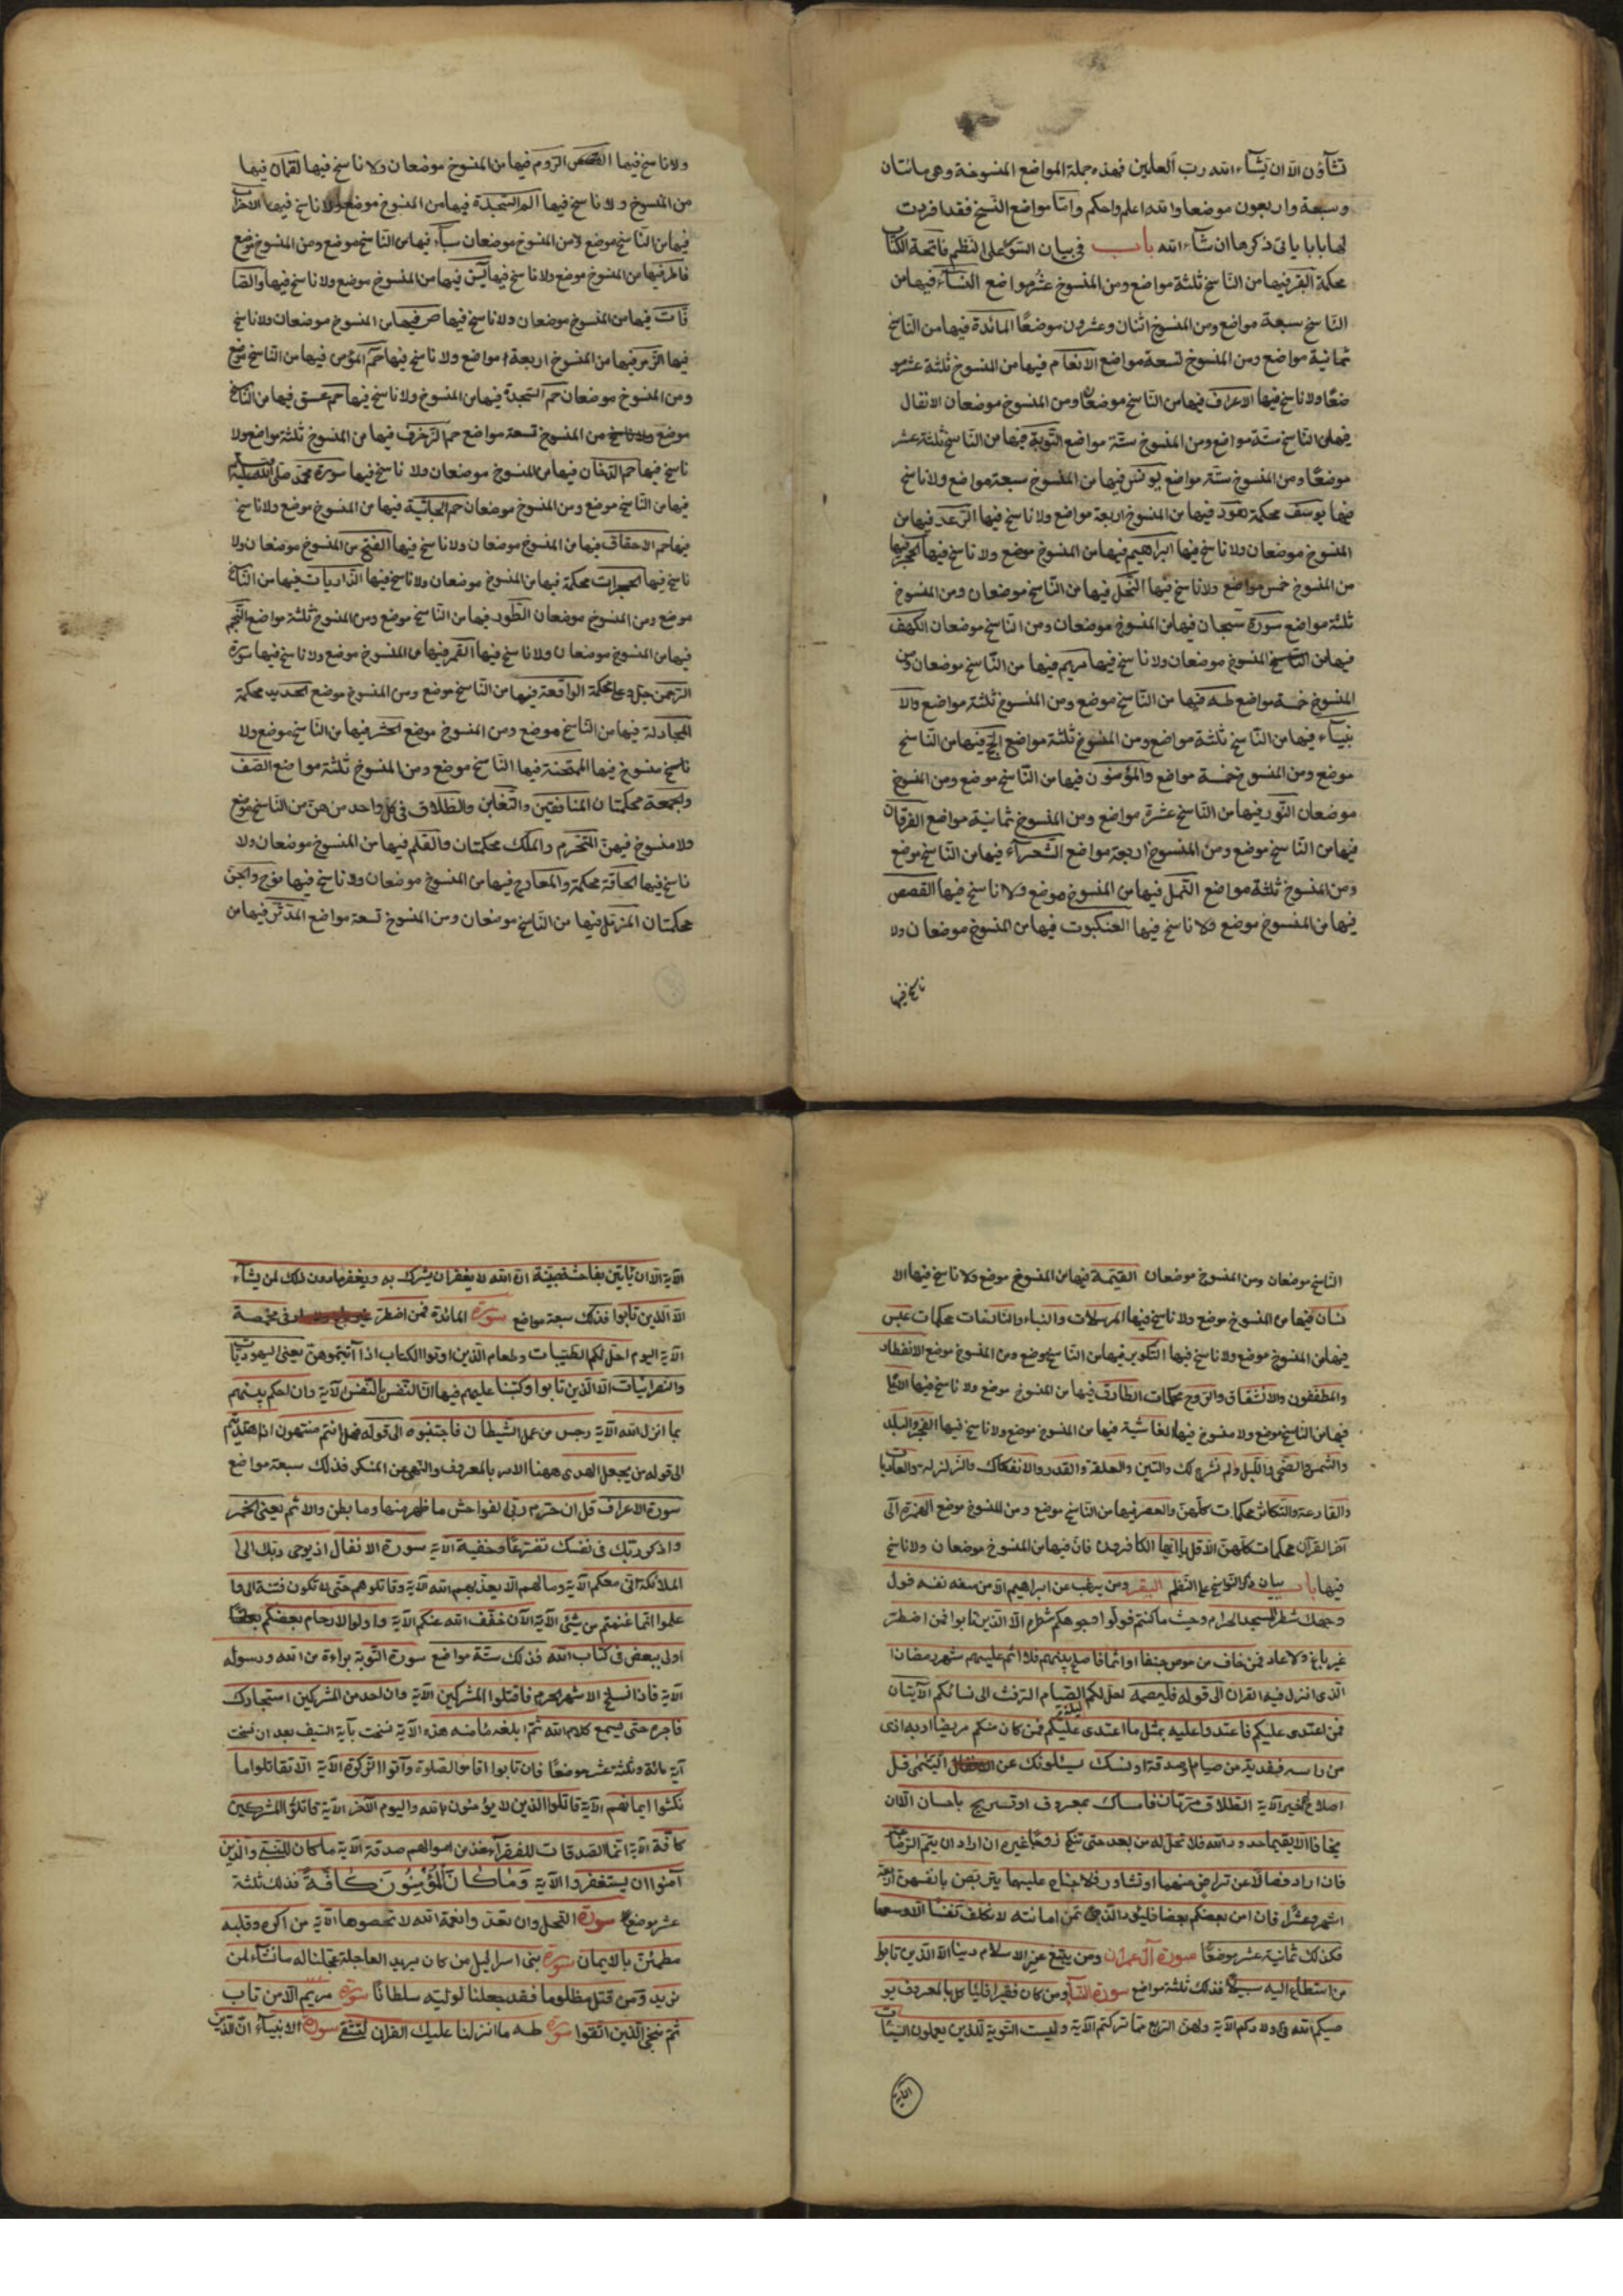 تشآؤن الا ان يشآء الله رب العلمين فهذه جملة المواضع المنسوخة وهى مائتان
وسبعة واربعون موضعا والله اعلم واحكم واما مواضع النسخ فقد افردت
لها بابا ياتى ذكرها ان شآء الله باب فى بيان السور على النظم فاتحة الكتاب
محكمة البقر فيها من الناسخ ثلثة مواضع ومن المنسوخ عشر مواضع النسآء فيها من
الناسخ سبعة مواضع ومن المنسوخ اثنان وعشرون موضعا المائدة فيها من الناسخ
ثمانية مواضع ومن المنسوخ تسعة مواضع الانعام فيها من المنسوخ ثلثة عشر مو
ضعا ولا ناسخ فيها الاعراف فيها من الناسخ موضعان ومن المنسوخ موضعان الانفال
فيها من الناسخ ستة مواضع ومن المنسوخ ستة مواضع التوبة فيها من الناسخ ثلثة عشر
موضعا ومن المنسوخ ستة مواضع يونس فيها من المنسوخ سبعة مواضع ولا ناسخ
فيها يوسف محكمة هود فيها من المنسوخ اربعة مواضع ولا ناسخ فيها الرعد فيها من
المنسوخ موضعان ولا ناسخ فيها ابراهيم فيها من المنسوخ موضع ولا ناسخ فيها الحجر فيها
من المنسوخ خمس مواضع ولا ناسخ فيها النحل فيها من الناسخ موضعان ومن المنسوخ
ثلثة مواضع سورة سبحان فيها من المنسوخ موضعان ومن الناسخ موضعان الكهف
فيها من المنسوخ موضعان ولا ناسخ فيها مريم فيها من الناسخ موضعان ومن
المنسوخ خمسة مواضع طه فيها من الناسخ موضع ومن المنسوخ ثلثة مواضع والا
نبيآء فيها من الناسخ ثلثة مواضع ومن المنسوخ ثلثة مواضع الحج فيها من الناسخ
موضع ومن المنسوخ خمسة مواضع والمؤمنون فيها من الناسخ موضع ومن المنسوخ
موضعان النور فيها من الناسخ عشرة مواضع ومن المنسوخ ثمانية مواضع الفرقان
فيها من الناسخ موضع ومن المنسوخ اربعة مواضع الشعرآء فيها من الناسخ موضع
ومن المنسوخ ثلثة مواضع النمل فيها من المنسوخ موضع ولا ناسخ فيها القصص
فيها من المنسوخ موضع ولا ناسخ فيها العنكبوت فيها من المنسوخ موضعان ولا
ناسخ فيها
ولا ناسخ فيها الروم فيها من المنسوخ موضعان ولا ناسخ فيها لقمان فيها
من المنسوخ ولا ناسخ فيها الم السجدة فيها من المنسوخ موضع ولا ناسخ فيها الاحزاب
فيها من الناسخ موضع ومن المنسوخ موضعان سبآء فيها من الناسخ موضع ومن المنسوخ موضع
فاطر فيها من المنسوخ موضع ولا ناسخ فيها يس فيها من المنسوخ موضع ولا ناسخ فيها والصا
فات فيها من المنسوخ موضعان ولا ناسخ فيها ص فيها من المنسوخ موضعان ولا ناسخ
فيها الزمر فيها من المنسوخ اربعة مواضع ولا ناسخ فيها حم المؤمن فيها من الناسخ موضع
ومن المنسوخ موضعان حم السجدة فيها من المنسوخ ولا ناسخ فيها حم عسق فيها من الناسخ
موضع من المنسوخ تسعة مواضع حم الزخرف فيها من المنسوخ ثلثة مواضع ولا
ناسخ فيها حم الدخان فيها من المنسوخ موضعان ولا ناسخ فيها سورة محمد صلى الله عليه
فيها من الناسخ موضع ومن المنسوخ موضعان حم الجاثية فيها من المنسوخ موضع ولا ناسخ
فيها حم الاحقاف فيها من المنسوخ موضعان ولا ناسخ فيها الفتح من المنسوخ موضعان ولا
ناسخ فيها الحجرات محكمة فيها من المنسوخ موضعان ولا ناسخ فيها الذاريات فيها من الناسخ
موضع ومن المنسوخ موضعان الطور فيها من الناسخ موضع ومن المنسوخ ثلثة مواضع النجم
فيها من المنسوخ موضعان ولا ناسخ فيها القمر فيها من المنسوخ موضع ولا ناسخ فيها سورة
الرحمن جل وعلا محكمة الواقعة فيها من الناسخ موضع ومن المنسوخ موضع الحديد محكمة
المجادلة فيها من الناسخ موضع ومن المنسوخ موضع الحشر فيها من الناسخ موضع ولا
ناسخ منسوخ فيها الممتحنة فيها الناسخ موضع ومن المنسوخ ثلثة مواضع الصف
والجمعة محكمتان المنافقين والتغابن والطلاق فى كل واحد من هن من الناسخ موضع
ولا منسوخ فيهن التحرم والملك محكمتان والقلم فيها من المنسوخ موضعان ولا
ناسخ فيها الحاقة محكمة والمعارج فيها من المنسوخ موضعان ولا ناسخ فيها نوح والجن
محكمتان المزمل فيها من الناسخ موضعان ومن المنسوخ تسعة مواضع المدثر فيها من
الناسخ موضعان ومن المنسوخ موضعان القيمة فيها من المنسوخ موضع ولا ناسخ فيها الا
نسان فيها من المنسوخ موضع ولا ناسخ فيها المرسلات والنباء والنازعات محكمات عبس
فيها من المنسوخ موضع ولا ناسخ فيها التكوير فيها من الناسخ موضع ومن المنسوخ موضع الانفطار
والمطففون والانشقاق والبروج محكمات الطارق فيها من المنسوخ موضع ولا ناسخ فيها الاعلى
فيها من الناسخ موضع ولا منسوخ فيها الغاشية فيها من المنسوخ موضع ولا ناسخ فيها الفجر والبلد
والشمس والضحى والليل والم نشرح لك والتين والعلقة والقدر والانفكاك والزلزلة والعاديات
والقارعة والتكاثر محكمات كلهن والعصر فيها من الناسخ موضع ومن المنسوخ موضع الهمزة الى
آخر القرآن محكمات كلهن الا قل يا ايها الكافرون فان فيها من المنسوخ موضعان ولا ناسخ
فيها باب بيان ذكر النواسخ على النظم البقر ومن يرغب عن ابراهيم الا من سفه نفسه فول
وجهك شطر المسجد الحرام وحيث ما كنتم فولوا وجوهكم شطره الا الذين تابوا فمن اضطر
غير باغ ولا عاد فمن خاف من موص جنفا او اثما فاصلح بينهم فلا اثم عليهم شهر رمضان ا
الذى انزل فيه القران الى قوله فليصمه احل لكم ليلة الصيام الرفث الى نسائكم الآيتان
فمن اعتدى عليكم فاعتدوا عليه بمثل ما اعتدى عليكم فمن كان منكم مريضا او به اذى
من راسه ففدية من صيام او صدقة او نسك يسئلونك عن اليتمى قل
اصلاح لهم خير الآية الطلاق مرتان فامساك بمعروف او تسريح باحسان الا ان
يخافا الا يقيما حدود الله فلا تحل له من بعد حتى تنكح زوجا غيره ان اراد ان يتم الرضاعة
فان ارادا فصالا عن تراض منهما وتشاور فلا جناح عليهما يتربصن بانفسهن اربعة
اشهر وعشرا فان امن بعضكم بعضا فليؤد الذى اؤتمن امانته لا نكلف نفسا الا وسعها
فذلك ثمانية عشر موضعا سورة آل عمران ومن يبتغ غير الاسلام دينا الا الذين تابوا
من استطاع اليه سبيلا فذلك ثلثة مواضع سورة النسآء ومن كان فقيرا فلياكل بالمعروف يو
صيكم الله فى اولادكم الآية ولهن الربع مما تركتم الآية وليست التوبة للذين يعملون السيئات
الآية
الآية الا ان ياتين بفاحشة مبينة ان الله لا يغفر ان يشرك به ويغفر ما دون ذلك لمن يشآء
الا الذين تابوا فذلك سبعة مواضع سورة المائدة فمن اضطر فى مخمصة
الآية اليوم احل لكم الطيبات وطعام الذين اوتوا الكتاب اذا آتيتموهن يعنى اليهوديات
والنصرانيات الا الذين تابوا وكتبنا عليهم فيها ان النفس بالنفس الآية وان احكم بينهم
بما انزل الله الآية رجس من عمل الشيطان فاجتنبوه الى قوله فهل انتم منتهون اذا اهتديتم
الى قوله من يجعل الهدى ههنا الامر بالمعروف والنهى عن المنكر فذلك سبعة مواضع
سورة الاعراف قل ان حرم ربى الفواحش ما ظهر منها وما بطن والاثم يعنى الخمر
واذكر ربك فى نفسك تضرعا وخفية الآية سورة الانفال اذ يوحى ربك الى ا
الملائكة انى معكم الآية وما لهم الا يعذبهم الله الآية وقاتلوهم حتى لا تكون فتنة الى وا
علموا انما غنمتم من شيئ الآية الآن خفف الله عنكم الآية واولوا الارحام بعضكم
اولى ببعض فى كتاب الله فذلك ستة مواضع سورة التوبة براءة من الله ورسوله
الآية فاذا انسلخ الاشهر الحرم فاقتلوا المشركين الآية وان احد من المشركين استجارك
فاجره حتى يسمع كلام الله ثم ابلغه مامنه هذه الآية نسخت بآية السيف بعد ان نسخت
آية مائة وثلثة عشر موضعا فان تابوا اقاموا الصلوة وآتوا الزكوة الآية الا تقاتلوا ما
نكثوا ايمانهم الآية قاتلوا الذين لا يؤمنون بالله واليوم الآخر الآية قاتلوا المشركين
كافة الآية انما الصدقات للفقرآء خذ من اموالهم صدقة الآية ما كان للنبى والذين
آمنوا ان يستغفروا الآية وما كان المؤمنون كافة فذلك ثلثة
عشر موضعا سورة النحل وان تعدوا نعمة الله لا تحصوها الآية من اكره وقلبه
مطمئن بالايمان سورة بنى اسرائيل من كان يريد العاجلة عجلنا له ما نشآء لمن
نريد ومن قتل مظلوما فقد جعلنا لوليه سلطانا سورة مريم الا من تاب
ثم ننجى الذين اتقوا سورة طه ما انزلنا عليك القران لتشقى سورة الانبيآء ان الذين